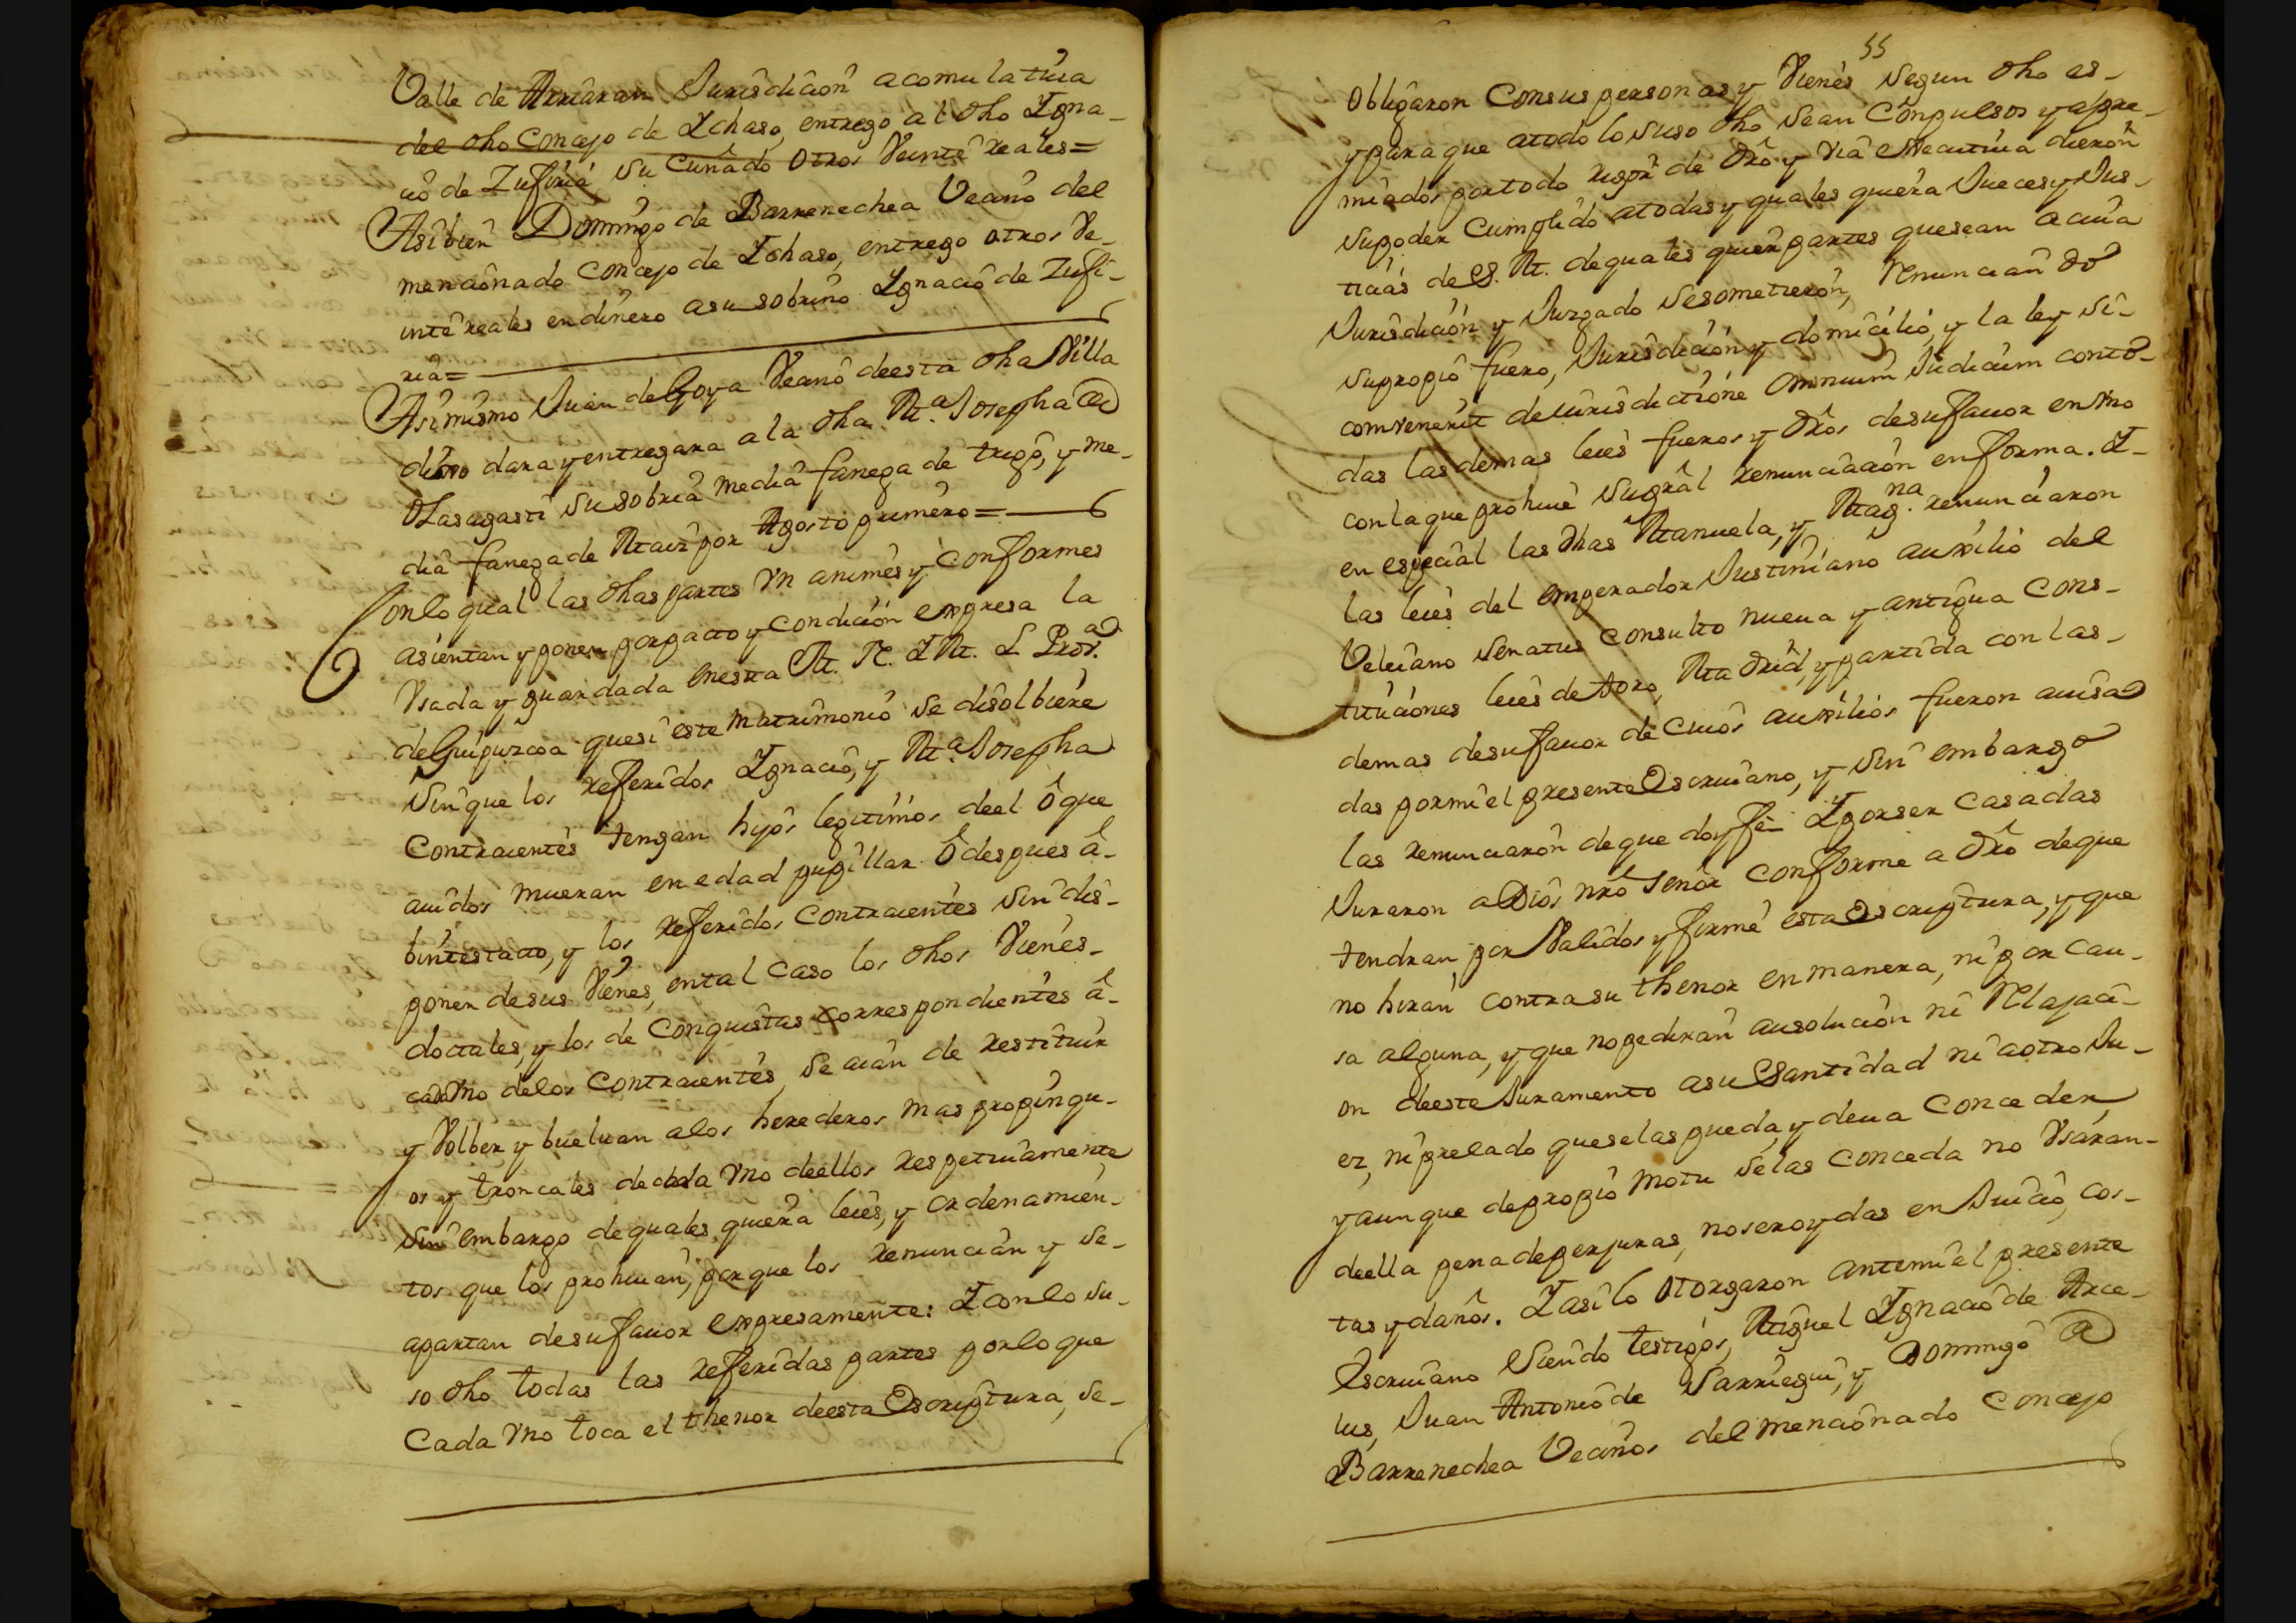 Valle de Arriaran Jurisdicion acomulatiua
del dho Concejo de Ichaso, entrego al dho Igna-
cio de Zufiria su Cuñado otros Veinte reales=
Asibien Domingo de Barrenechea Vecino del
mencionado Concejo de Ichaso, entrego otros Ve-
inte reales en dinero a su sobrino Ignacio de Zufi-
ria=
Asimismo Juan de Goya Vecino de esta dha Villa
dara y entregara a la dha Ma. Josepha
Olasagasti su sobrina media fanega de trigo, y me-
dia fanega de Maiz por Agosto primero=
Con lo qual las dhas partes Vn animes y conformes
asientan y ponen por pacto y condicion expresa la
Vsada y guardada en esta M. N. I M. L. Proa.
de Guipuzcoa que si este matrimonio se disolbiere
sin que los referidos Ignacio, y Ma. Josepha
Contraientes tengan hijos legitimos de el ô que
auidos mueran en edad pupillar ô despues â-
bintestato, y los referidos Contraientes sin dis-
poner de sus Vienes, en tal caso los dhos Vienes-
doctales, y los de Conquistas correspondientes â-
cada Vno de los Contraientes, se aian de restituir
y Volber y bueluan a los herederos mas propinqu-
os y troncales de cada Vno de ellos respetiuamente
sin embargo de quales quiera leies, y ordenamien-
tos que los prohiuan, por que los renuncian y se-
apartan de su fauor expresamente: I con lo su-
so dho todas las referidas partes por lo que
Cada Vno toca el thenor de esta Escriptura, se-
55
obligaron Con sus personas y Vienes segun dho es-
y para que a todo lo suso dho sean Compulsos y apre-
miados por todo rigor de dro y via executiua dieron
su poder Cumplido a todas y quales quiera Jueces y Jus-
ticias de S. M. de quales quier partes que sean a cuia
Jurisdicion y Juzgado se sometieron, renuncian do
su propio fuero, Jurisdicion y domicilio, y la ley si-
comvenerit de iurisdictione omnium Judicum con to-
das las demas leies fueros y dros de su fauor en Vno
con la que prohiue su gral renunciacion en forma. I-
en especial las dhas Manuela, y Magna. renunciaron
las leies del emperador Justiniano auxilio del
Veleiano senatus consulto nueua y antigua Cons-
tituciones leies de toro, Madrid, y partida con las-
demas de su fauor de cuios auxilios fueron auisa
das por mi el presente Escriuano, y sin embargo
las renunciaron de que doy fe- I por ser casadas
Juraron a Dios nro señor conforme a dro de que
tendran por Validos y firme esta Escriptura, y que
no hiran contra su thenor en manera, ni por cau-
sa alguna, y que no pediran ausolucion ni relajaci-
on de este Juramento a su Santidad ni a otro Ju-
ez, ni prelado que se las pueda, y deua conceder,
y aun que de propio motu se las conceda no Vsaran-
de ella pena de perjuras, no ser oydas en Juicio, cos-
tas y daños. I asi lo otorgaron ante mi el presente
Escriuano siendo testigos, Miguel Ignacio de Arce-
lus, Juan Antonio de Sarriegui, y Domingo
Barrenechea Vecinos del mencionado Concejo